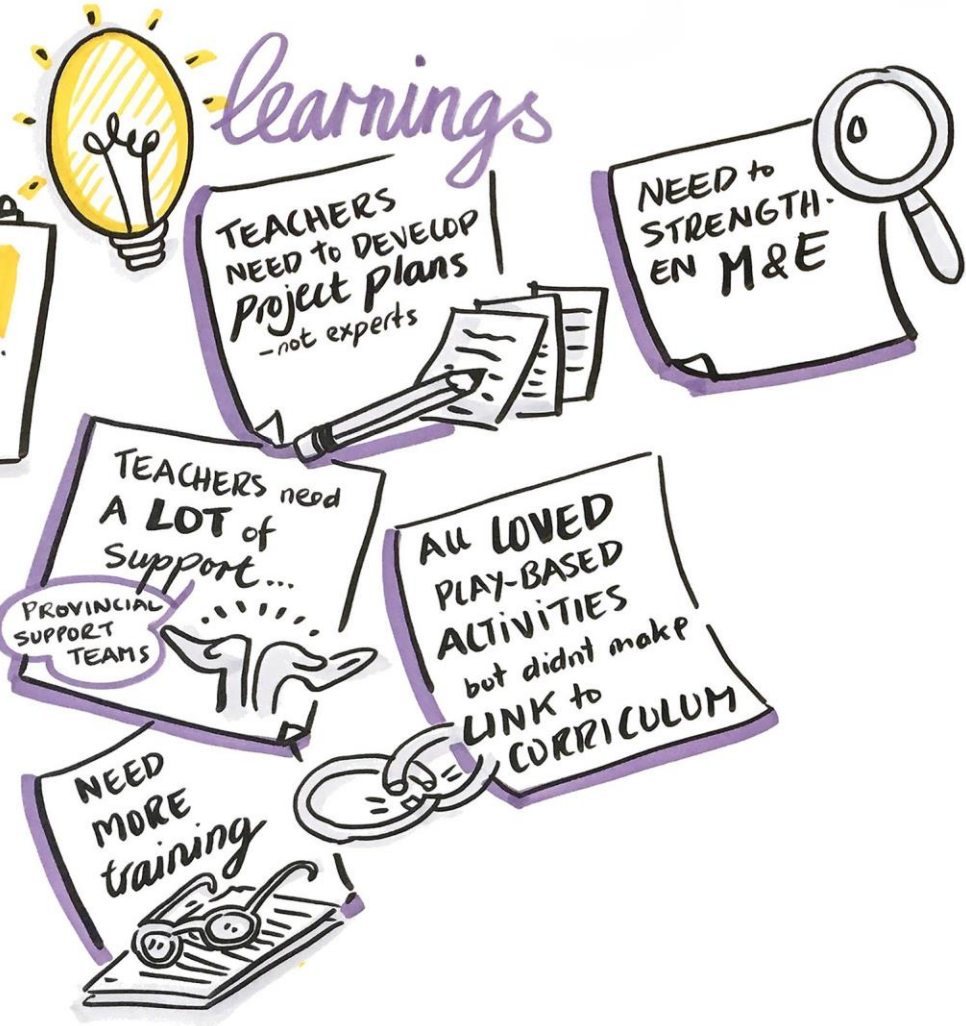 learnings
TEACHERS
NEED to DEVELOP
Project Plans
-not experts
NEED to
STRENGTH-
EN M&E
TEACHERS need
A LOT of
Support...
PROVINCIAL
SUPPORT
TEAMS
ALL LOVED
PLAY-BASED
ACTIVITIES
but didnt make
LINK to
CURRICULUM
NEED
MORE
training